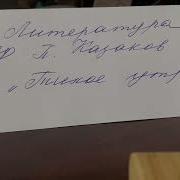 Литература
Ю П. Казаков
„Тихое утр